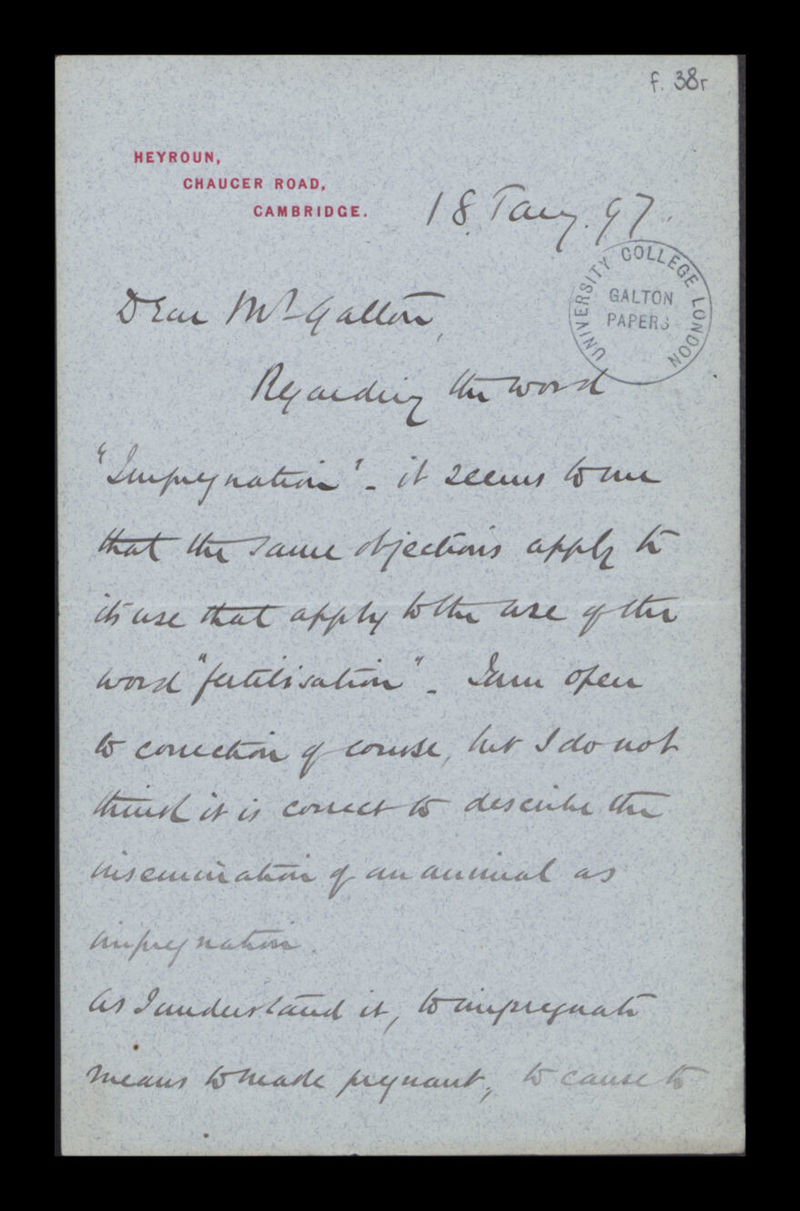 f. 38r
HEYROUN,
CHAUCER ROAD,
CAMBRIDGE.
18 Jany. 97.
UNIVERSITY COLLEGE LONDON
GALTON
PAPERS
Dear Mr Galton,
Regarding the word
"Impregnation" - it seems to me
that the same objections apply to
its use that apply to the use of the
word "fertilisation". I am open
to correction of course, but I do not
think it is correct to describe the
insemination of an animal as
impregnation.
As I understand it, to impregnate
means to make pregnant, to cause to